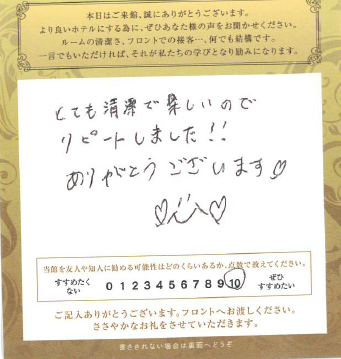 本日はご来館、誠にありがとうございます。
より良いホテルにする為に、ぜひあなた様の声をお聞かせください。
ルームの清潔さ、フロントでの接客…何でも結構です。
一言でもいただければ、それが私たちの学びとなり励みになります。
とても清潔で楽しいので
リピートしました!!
ありがとうございます♡
♡♡
当館を友人や知人に勧める可能性はどのくらいあるか、点数で教えてください。
すすめたくない 0 1 2 3 4 5 6 7 8 9 10 ぜひすすめたい
ご記入ありがとうございます。フロントへお渡しください。
ささやかなお礼をさせていただきます。
書ききれない場合は裏面へどうぞ